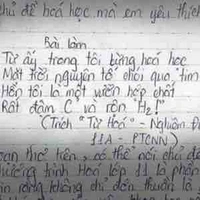 chủ đề hoá học mà em yêu thích
Bài làm
Từ ấy trong tôi bừng hoá học
Mặt trời nguyên tố chói qua tim
Hồn tôi là một vườn hợp chất
Rất đậm C và rộn "H₂"
(Trích "Từ Hoá" - Nghiêm Đ
11A - PTCNN)
đoạn thơ trên, có thể nói chủ đề
chương trình Hoá lớp 11 là phần
không chỉ đơn thuần là